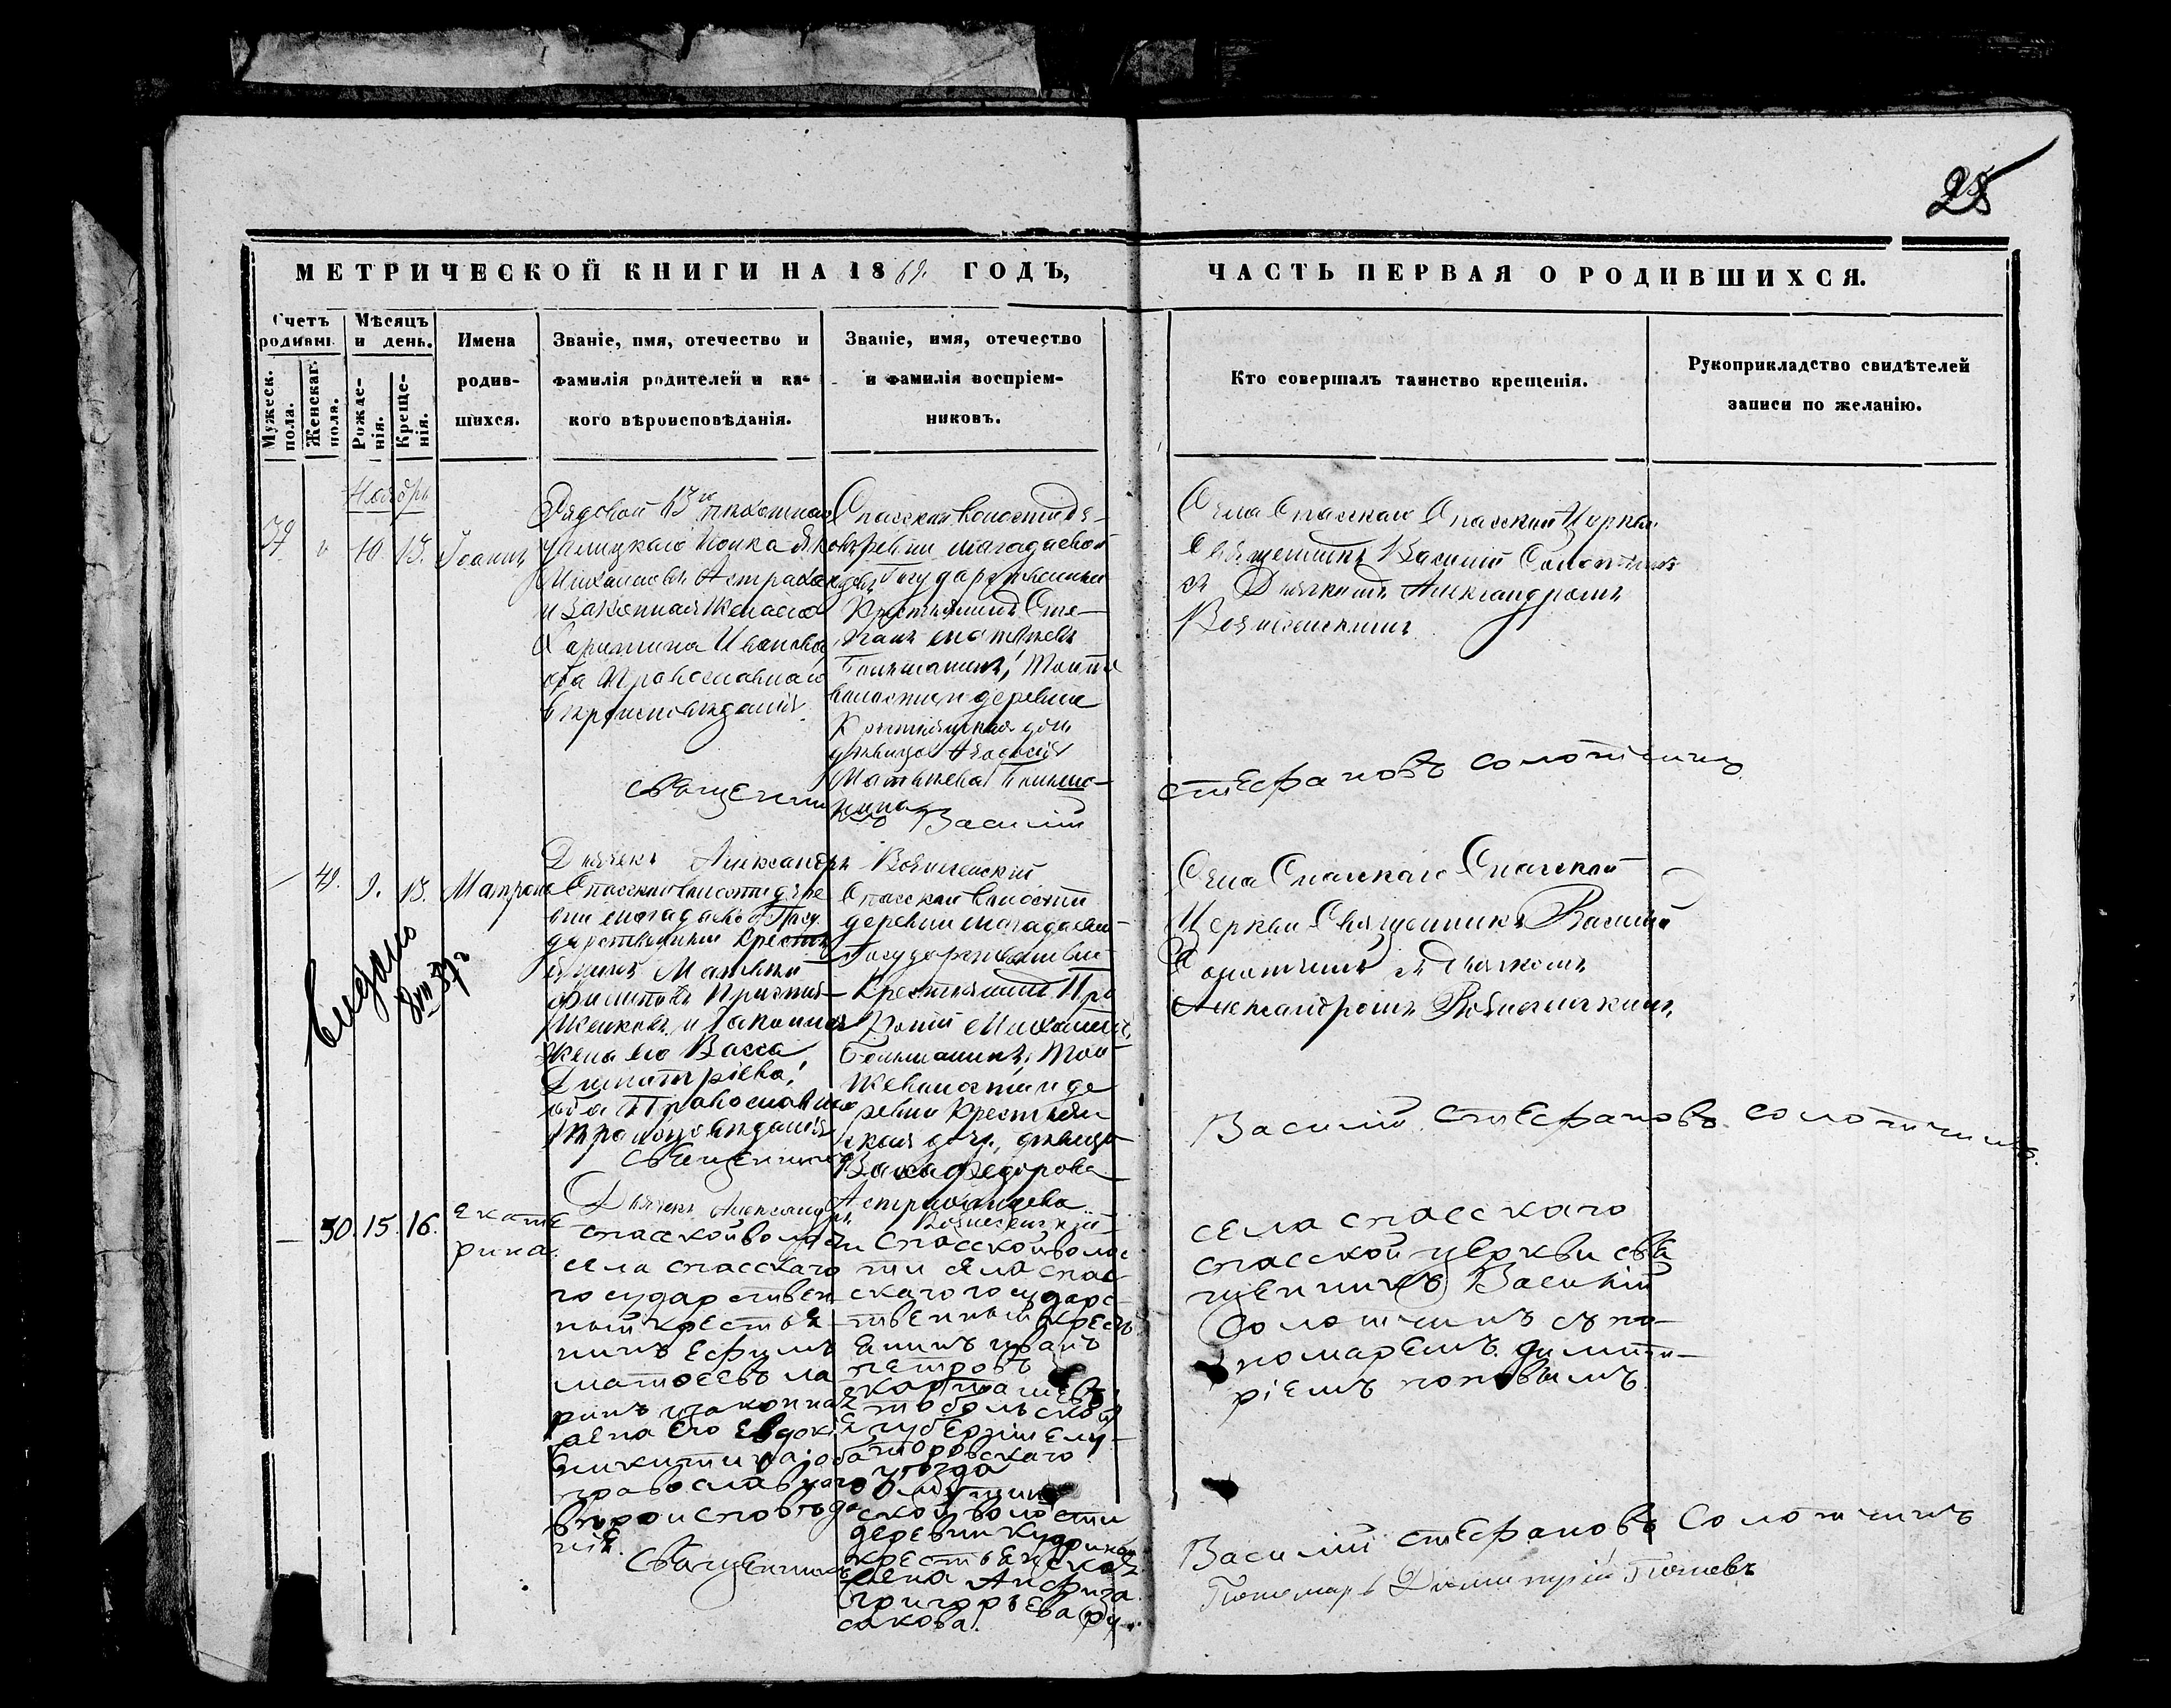 28
МЕТРИЧЕСКОЙ КНИГИ НА 1869. ГОДЪ,
ЧАСТЬ ПЕРВАЯ О РОДИВШИХСЯ.
Счетъ родивш.
Мужеск. пола.
Женскаг. пола.
Мѣсяцъ и день.
Рожденія.
Крещенія.
Имена
родив-
шихся.
Званіе, имя, отечество и
фамилія родителей и ка-
кого вѣроисповѣданія.
Званіе, имя, отечество
и фамилія воспріем-
никовъ.
Кто совершалъ таинство крещенія.
Рукоприкладство свидѣтелей
записи по желанію.
Ноябрь
10. 13. Іоаннъ
Рядовой 13го пѣхотнаго
полка Яковъ
Михайловъ Астраханцевъ
и законная жена его
Иванова
оба Православнаго
вѣроисповѣданія.
Спасской волости де-
ревни
Государственный
Крестьянинъ Сте-
панъ
Большанинъ, той же
волости и деревни
Крестьянская дочь
дѣвица
Матвѣева Больша-
нина
Села Спасскаго Спасской Церкви
Священникъ Василій Солотчинъ
съ Дьячкомъ Александромъ
Вознесенскимъ
Священникъ Василій Стефановъ Солотчинъ
Дьячекъ Александръ Вознесенскій
— 49. 9. 13. Матрона
Спасской волости дере
вни Госу
дарственный Крестья
янинъ Матвѣй
Филиповъ
и законная
жена его Васса
Димитріева,
оба Православнаго
вѣроисповѣданія
Спасской волости
деревни
Государственный
Крестьянинъ Про
копій Михайловъ
Большанинъ, той
же волости и де
ревни Крестьян
ская дочь, дѣвица
Васса Федорова
Астраханцева
Села Спасскаго Спасской
Церкви Священникъ Василій
Солотчинъ съ Дьячкомъ
Александромъ Вознесенскимъ
Выдано
Священникъ Василій Стефановъ Солотчинъ
Дьячекъ Александръ Вознесенскій
— 50. 15. 16. Екате
рина.
спасской волости
села спасскаго
государствен
ный крестья
нинъ Ефимъ
матѳеевъ ла
ринъ и законная
жена его Евдокія
никитина, оба
православнаго
вѣроисповѣда
нія.
Спасской волос
ти села спас
скаго государс
твенный крест
янинъ иванъ
петровъ
карташевъ,
тобольской
губерніи ялу
торовскаго
уѣзда
ской волости
деревни
крестьянская
жена Анфиза
григорьева ру
сакова.
села спасскаго
спасской церкви свя
щенникъ Василій
Солотчинъ съ по-
номаремъ димит-
ріемъ поповымъ
Священникъ Василій стефановъ Солотчинъ
Пономарь Димитрій Поповъ